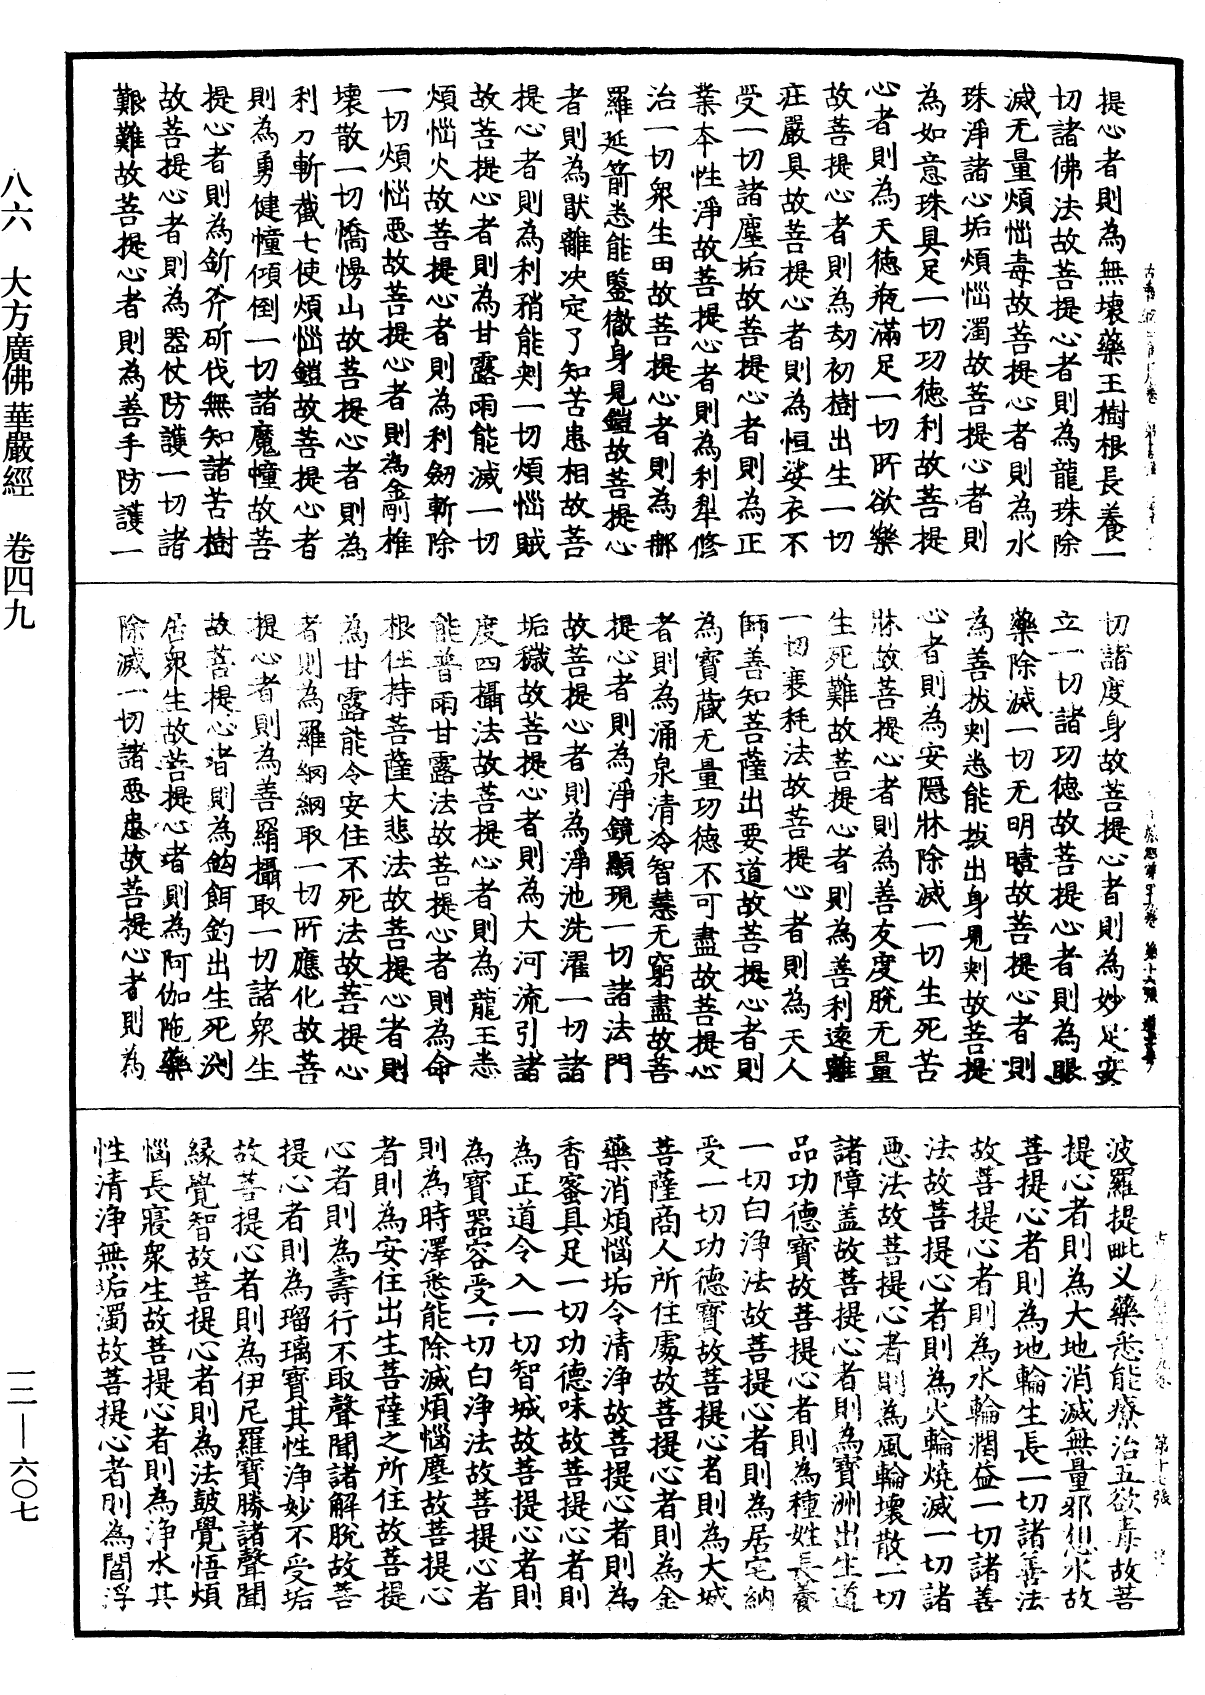 提心者則為無壞藥王樹根長養一
切諸佛法故菩提心者則為龍珠除
滅无量煩惱毒故菩提心者則為水
珠淨諸心垢煩惱濁故菩提心者則
為如意珠具足一切功德利故菩提
心者則為天德瓶滿足一切所欲樂
故菩提心者則為劫初樹出生一切
疘嚴具故菩提心者則為恒娑衣不
受一切諸塵垢故菩提心者則為正
業本性淨故菩提心者則為利犁修
治一切衆生田故菩提心者則為那
羅延箭悉能鑒徹身見鎧故菩提心
者則為猒離决定了知苦患相故菩
提心者則為利矟能剌一切煩惱賊
故菩提心者則為甘露雨能滅一切
煩惱火故菩提心者則為利劒斬除
一切煩惱惡故菩提心者則為金剛椎
壞散一切憍慢山故菩提心者則為
利刀斬截七使煩惱鎧故菩提心者
則為勇健幢傾倒一切諸魔幢故菩
提心者則為釿斧斫伐無知諸苦樹
故菩提心者則為器仗防護一切諸
艱難故菩提心者則為善手防護一
切諸度身故菩提心者則為妙足安
立一切諸功德故菩提心者則為眼
藥除滅一切无明曀故菩提心者則
為善拔刾悉能拔出身見刾故菩提
心者則為安隱牀除滅一切生死苦
牀故菩提心者則為善友度脫无量
生死難故菩提心者則為善利遠離
一切衰耗法故菩提心者則為天人
師善知菩薩出要道故菩提心者則
為寶藏无量功德不可盡故菩提心
者則為涌泉清冷智慧无窮盡故菩
提心者則為淨鏡顯現一切諸法門
故菩提心者則為淨池洗濯一切諸
垢穢故菩提心者則為大河流引諸
度四攝法故菩提心者則為龍王悉
能普雨甘露法故菩提心者則為命
根住持菩薩大悲法故菩提心者則
為甘露能令安住不死法故菩提心
者則為羅網網取一切所應化故菩
提心者則為善羂攝取一切諸衆生
故菩提心者則為鈎餌釣出生死渕
居衆生故菩提心者則為阿伽陁藥
除滅一切諸惡患故菩提心者則為
波羅提毗义藥悉能療治五欲毒故菩
提心者則為大地消滅無量邪想水故
菩提心者則為地輪生長一切諸善法
故菩提心者則為水輪潤益一切諸善
法故菩提心者則為火輪燒滅一切諸
惡法故菩提心者則為風輪壞散一切
諸障盖故菩提心者則為寶洲出生道
品功德寶故菩提心者則為種姓長養
一切白淨法故菩提心者則為居宅納
受一切功德寶故菩提心者則為大城
菩薩商人所住處故菩提心者則為金
藥消煩惱垢令清淨故菩提心者則為
香蜜具足一切功德味故菩提心者則
為正道令入一切智城故菩提心者則
為寶器容受一切白淨法故菩提心者
則為時澤悉能除滅煩惱塵故菩提心
者則為安住出生菩薩之所住故菩提
心者則為壽行不取聲聞諸解脫故菩
提心者則為瑠璃寶其性淨妙不受垢
故菩提心者則為伊尼羅寶勝諸聲聞
緣覺智故菩提心者則為法鼓覺悟煩
惱長寢衆生故菩提心者則為淨水其
性清淨無垢濁故菩提心者則為閻浮
八六　大方廣佛華嚴經　卷四九
一二—六〇七